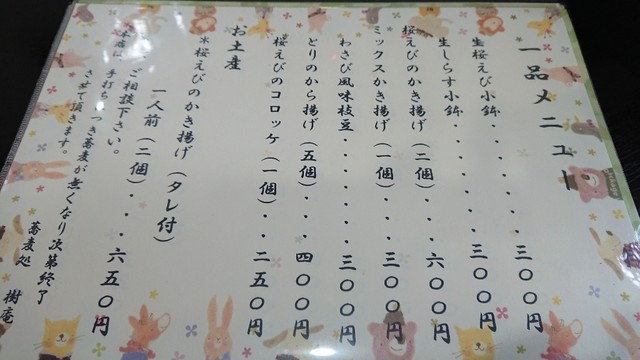 一品メニュー
生桜えび小鉢・・・・・・三〇〇円
生しらす小鉢・・・・・・三〇〇円
桜えびのかき揚げ（二個）・・六〇〇円
ミックスかき揚げ（一個）・・三〇〇円
わさび風味枝豆・・・・・・三〇〇円
とりのから揚げ（五個）・・四〇〇円
桜えびのコロッケ（一個）・・二五〇円
お土産
桜えびのかき揚げ（タレ付）
一人前（二個）・・・六五〇円
ご相談下さい。
本店は、手打ち つき蕎麦が無くなり次第終了
させて頂きます。
蕎麦処 樹庵